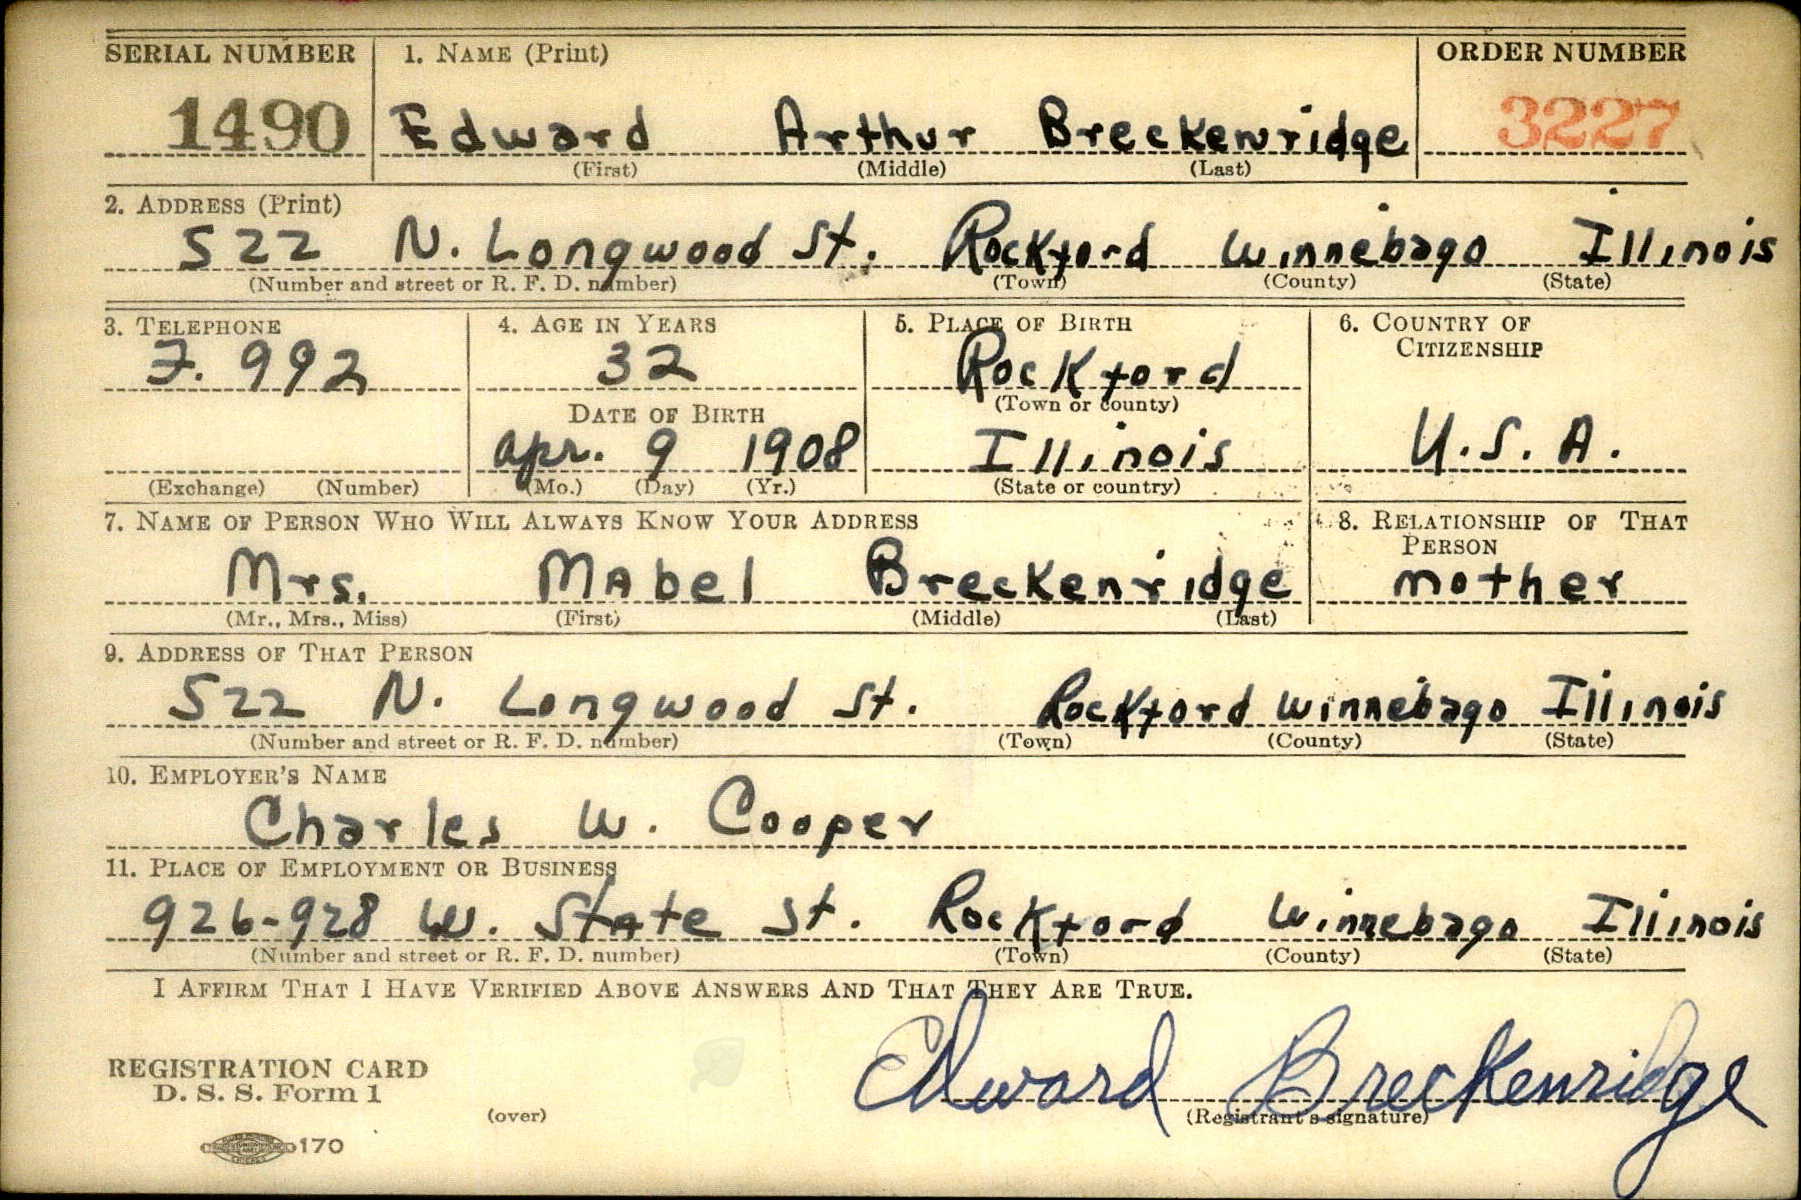 SERIAL NUMBER 1. NAME (Print) ORDER NUMBER
1490 Edward Arthur Breckenridge 3227
(First) (Middle) (Last)
2. ADDRESS (Print)
522 N. Longwood St. Rockford Winnebago Illinois
(Number and street or R. F. D. number) (Town) (County) (State)
3. TELEPHONE 4. AGE IN YEARS 5. PLACE OF BIRTH 6. COUNTRY OF
CITIZENSHIP
F. 992 32 Rockford
(Town or county)
DATE OF BIRTH
Apr. 9 1908 Illinois U.S.A.
(Exchange) (Number) (Mo.) (Day) (Yr.) (State or country)
7. NAME OF PERSON WHO WILL ALWAYS KNOW YOUR ADDRESS 8. RELATIONSHIP OF THAT
PERSON
Mrs. Mabel Breckenridge mother
(Mr., Mrs., Miss) (First) (Middle) (Last)
9. ADDRESS OF THAT PERSON
522 N. Longwood St. Rockford Winnebago Illinois
(Number and street or R. F. D. number) (Town) (County) (State)
10. EMPLOYER'S NAME
Charles W. Cooper
11. PLACE OF EMPLOYMENT OR BUSINESS
926-928 W. State St. Rockford Winnebago Illinois
(Number and street or R. F. D. number) (Town) (County) (State)
I AFFIRM THAT I HAVE VERIFIED ABOVE ANSWERS AND THAT THEY ARE TRUE.
REGISTRATION CARD
D. S. S. Form 1 Edward Breckenridge
(over) (Registrant's signature)
170